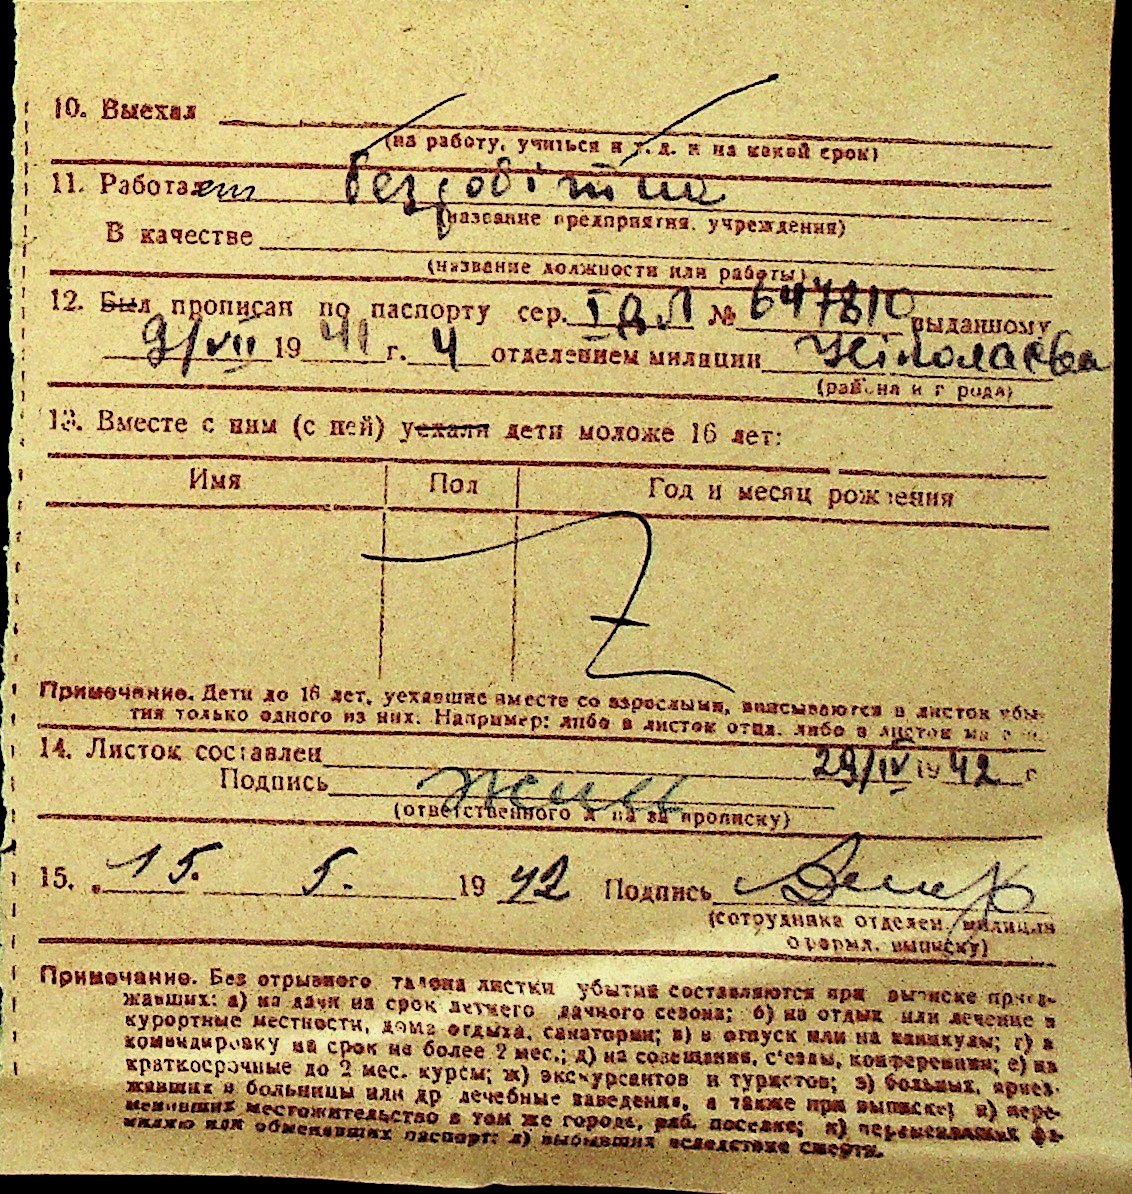 10. Выехал
(на работу, учиться и т. д. и на какой срок)
11. Работает безробітна
(название предприятия, учреждения)
В качестве
(название должности или работы)
12. Был прописан по паспорту сер. ІДЛ № 647810 выданному
9/VII 1941 г. 4 отделением милиции
(района и города)
13. Вместе с ним (с ней) уехали дети моложе 16 лет:
Имя Пол Год и месяц рождения
Z
Примечание. Дети до 16 лет, уехавшие вместе со взрослыми, вписываются в листок убы-
тия только одного из них. Например: либо в листок отца, либо в листок
14. Листок составлен 29/IV 1942 г.
Подпись
(ответственного за прописку)
15. 15. 5. 1942 Подпись
(сотрудника отделен. милиции
оформл. выписку)
Примечание. Без отрывного талона листки убытия составляются при выписке приез-
жавших: а) на дачи на срок летнего дачного сезона; б) на отдых или лечение в
курортные местности, дома отдыха, санатории; в) в отпуск или на каникулы; г) в
командировку на срок не более 2 мес.; д) на совещания, с'езды, конференции; е) на
краткосрочные до 2 мес. курсы; ж) экскурсантов и туристов; з) больных, приез-
жавших в больницы или др лечебные заведения, а также при выписке; и) пере-
менивших местожительство в том же городе, раб. поселке; к) переменивших фа-
милию или обменявших паспорт: л) выбывших вследствие смерти.